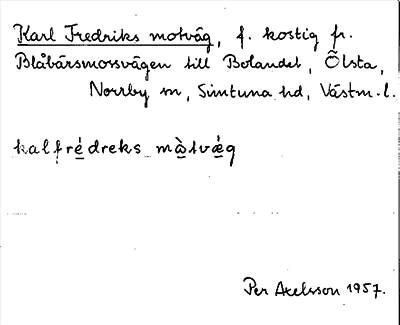 Karl Fredriks motväg, f. kostig fr.
Blåbärsmossvägen till Bolandet, Õlsta,
Norrby sn, Simtuna hd, Västm. l.
kalfrédreks mòtvǽg
Per Axelsson 1957.